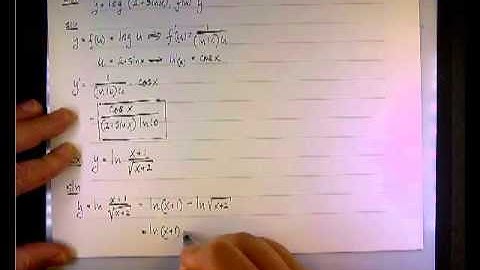 y = log (2+sinx), find y'
soln
y = f(u) = log u ⟹ f'(u) = 1/(ln10)u
u = 2+sinx ⟹ u'(x) = cosx
y' = 1/(ln10)u · cosx
= cosx/(2+sinx)ln10
Ex y = ln x+1/√x+2
soln
y = ln x+1/√x+2 = ln(x+1) - ln√x+2
= ln(x+1)